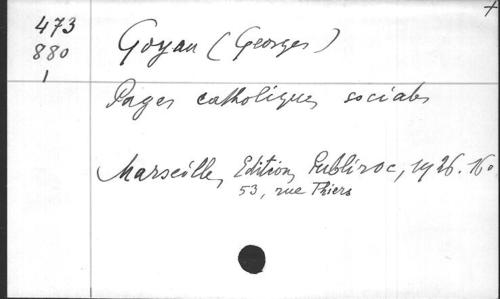 473
880
1
Goyau (Georges)
Pages catholiques sociales
Marseille, Editions Publiroc, 1926. 16°
53, rue Thiers